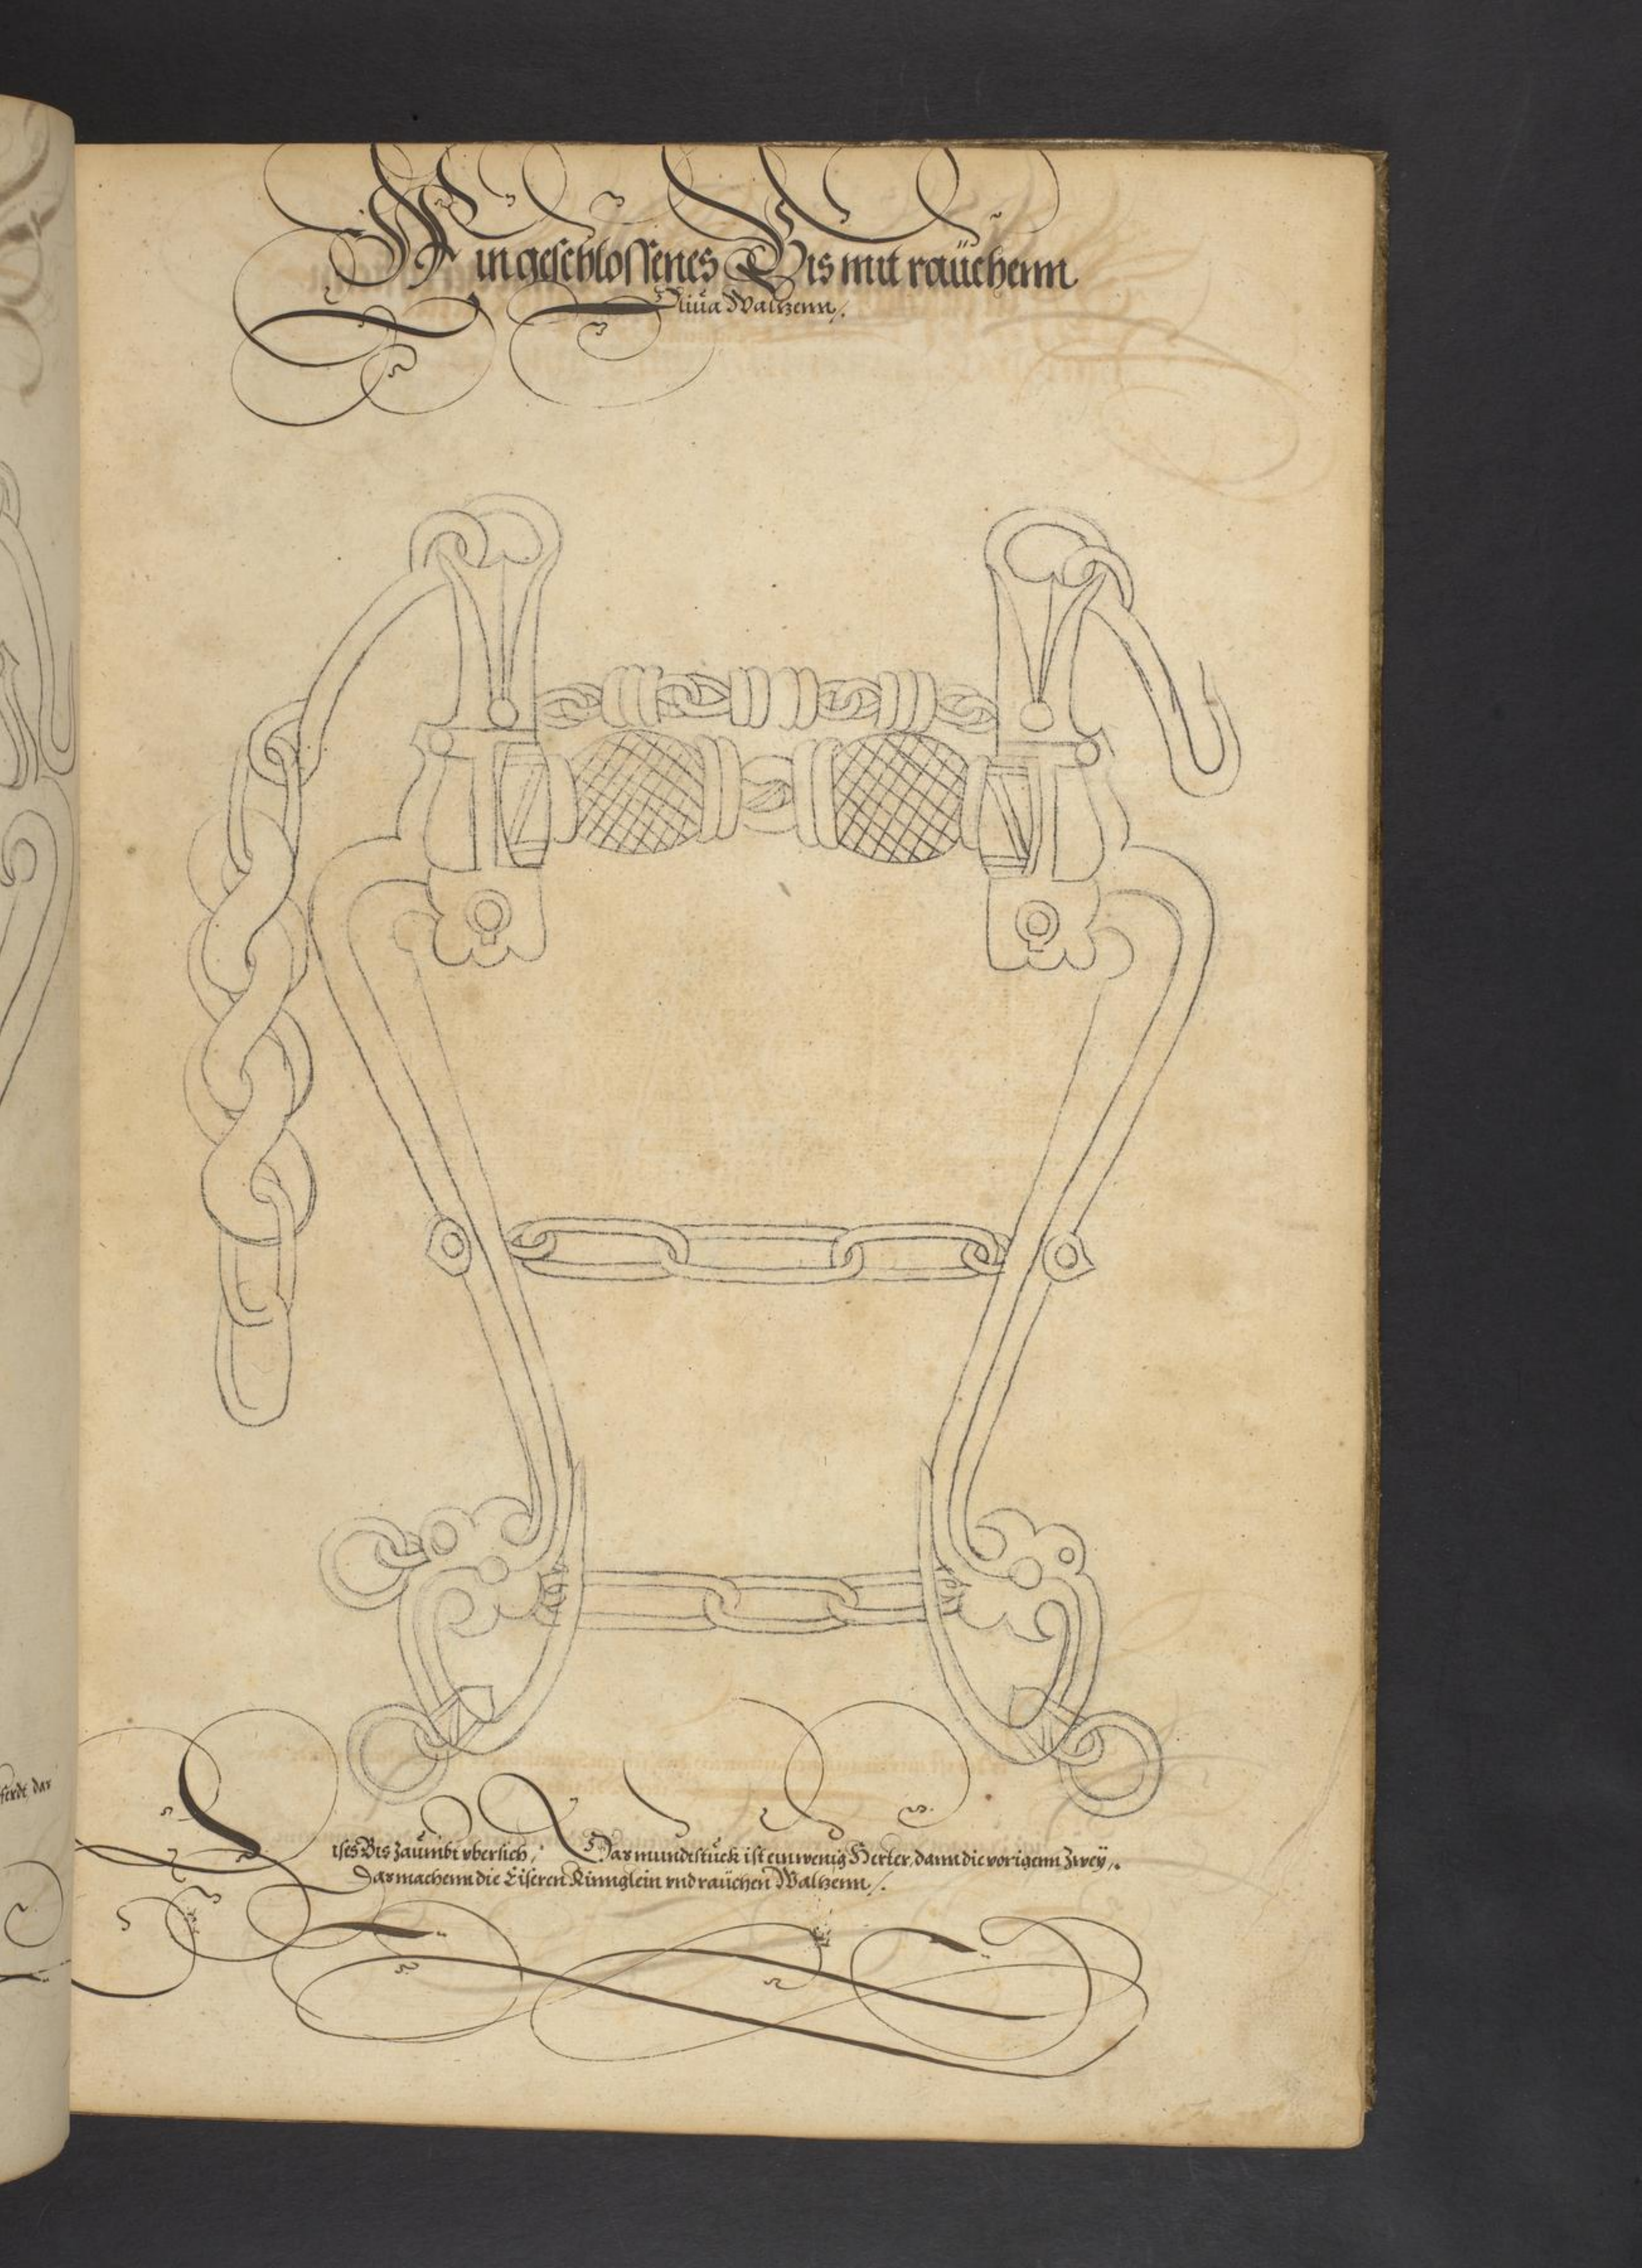 Ein geschlossenes Bis mit raüchenn
Oliüa Waltzenn /.
Dises Bis zaümbt vbersich / Das mundtstück ist ein wenig Herter, dann die vorigenn zweÿ /.
Das machenn die Eiseren Rinnglein vnd raüchen Waltzenn /.
ferdt, das